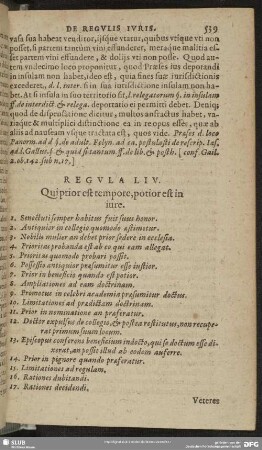 DE REGVLIS IVRIS. 539
vasa sua habeat venditor, ijsque vtatur, quibus vtique vti non
posset, si partem tantum vini effunderet, meraque malitia es-
set partem vini effundere, & dolijs vti non posse. Quod au-
tem vndecimo loco proponitur, quod Præses ius deportandi
in insulam non habet, ideo est, quia fines suæ iurisdictionis
excederet, d. l. inter. si in sua iurisdictione insulam non ha-
bet. At si insula in suo territorio sit, l. relegatorum §. in insulam
ff. de interdict. & releg. deportatio ei permitti debet. Deniq;
quod de dispensatione dicitur, multos anfractus habet, va-
riaque & multiplici distinctione ea in re opus esset; quæ ab
alijs ad nauseam vsque tractata est, quos vide. Præter d. loco
Panorm. ad d. §. de adult. Felyn. ad ca. postulasti de rescrip. Ias.
ad d. l. Gallus. §. & quid si tantum ff. de lib. & posth. [conf. Gail.
2. ob. 142. sub n. 17.]
REGVLA LIV.
Qui prior est tempore, potior est in
iure.
1. Senectuti semper habitus fuit suus honor.
2. Antiquior in collegio quomodo æstimetur.
3. Nobilis mulier an debet prior sedere in ecclesia.
4. Prioritas probanda est ab eo qui eam allegat.
5. Prioritas quomodo probari possit.
6. Possessio antiquior præsumitur esse iustior.
7. Prior in beneficio quando est potior.
8. Ampliationes ad eam doctrinam.
9. Promotus in celebri academia præsumitur doctus.
10. Limitationes ad prædictam doctrinam.
11. Prior in nominatione an præferatur.
12. Doctor expulsus de collegio, & postea restitutus, non recupe-
rat primum suum locum.
13. Episcopus conferens beneficium indocto, qui se doctum esse di-
xerat, an possit illud ab eodem auferre.
14. Prior in pignore quando præferatur.
15. Limitationes ad regulam.
16. Rationes dubitandi.
17. Rationes decidendi.
Veteres
SLUB
DFG